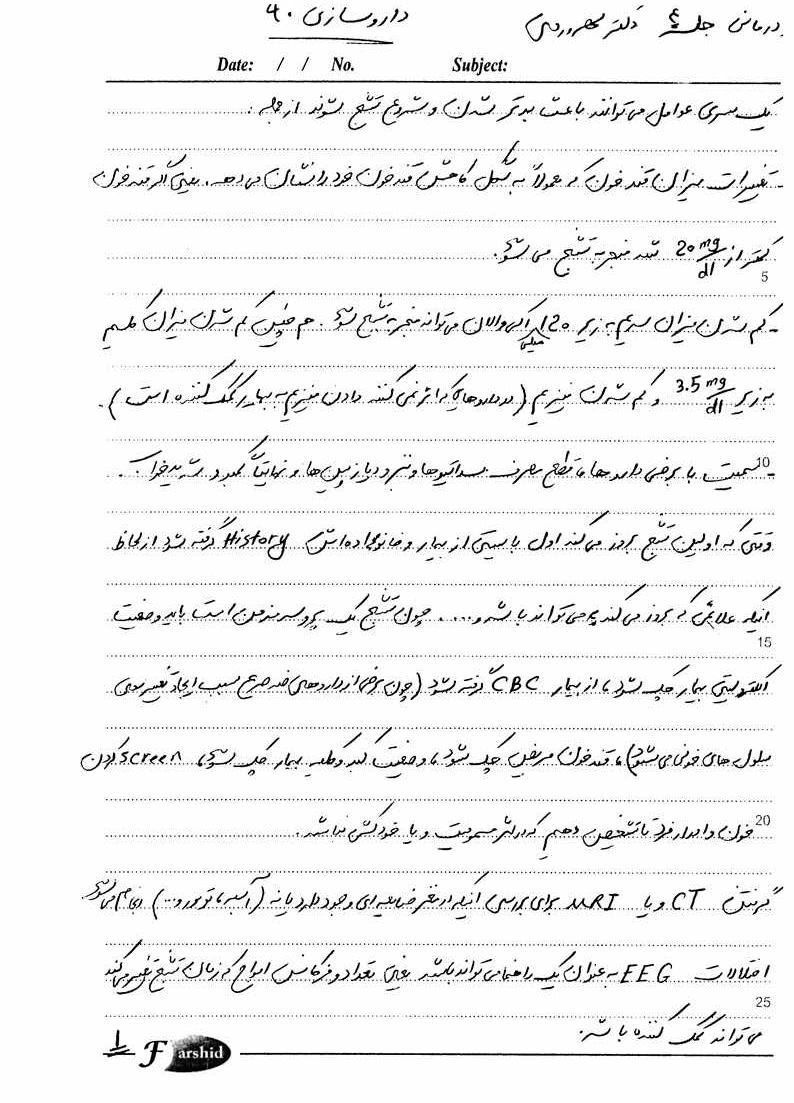 درمانی جلسه ۴ دکتر سهروردی داروسازی ۹۰
Date: / / No. Subject:
یک سری عوامل می توانند باعث بدتر شدن و شروع تشنج شوند از جمله :
- تغییرات میزان قند خون که معمولاً به شکل کاهش قند خون خود را نشان می دهد. یعنی اگر قند خون
کمتر از 20 mg/dl شد منجر به تشنج می شود.
5
- کم شدن میزان سدیم به زیر 120 میلی اکی والان می تواند منجر به تشنج شود. هم چنین کم شدن میزان کلسیم
به زیر 3.5 mg/dl و کم شدن منیزیم (در داروهایی که اثر نمی کنند دادن منیزیم به بیمار کمک کننده است).
10
- سمیت با برخی داروها، قطع مصرف سداتیوها و بنزودیازپین ها و نهایتاً کمبود شدید خواب.
وقتی که اولین تشنج بروز می کند اول بایستی از بیمار و خانواده اش History گرفته شود از لحاظ
اینکه علائمی که بروز می کند چه می تواند باشد و .... چون تشنج یک پروسه مزمن است باید وضعیت
15
الکترولیتی بیمار چک شود، از بیمار CBC گرفته شود (چون برخی از داروهای ضد صرع سبب ایجاد تغییر روی
سلول های خونی می شود)، قند خون مریض چک شود، وضعیت کبد و کلیه بیمار چک شود، screen کردن
20
خون و ادرار فرد تا تشخیص دهیم که در اثر مسمومیت و یا خودکشی نباشد.
گرفتن CT و یا MRI برای بررسی اینکه در مغز ضایعه ای وجود دارد یا نه (آبسه، تومور و...) انجام می شود.
اختلالات EEG به عنوان یک راهنما می تواند باشد یعنی تعداد و فرکانس امواج که زمان تشنج تغییر می کند
25
می تواند کمک کننده باشد.
۱ Farshid